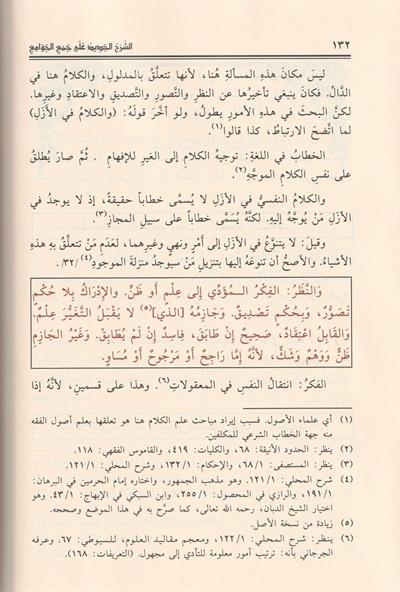 ١٣٢
الشرح الجديد على جمع الجوامع
ليسَ مكانَ هذهِ المسألةِ هُنا، لأنها تتعلَّقُ بالمدلولِ، والكلامُ هنا في
الدَّالِّ. فكانَ ينبغي تأخيرُها عن النظرِ والتَّصورِ والتَّصديقِ والاعتقادِ وغيرِها.
لكنَّ البحثَ في هذهِ الأمورِ يطولُ، ولو أخَّرَ قولَهُ: (والكلامُ في الأزلِ)
لما اتَّضحَ الارتباطُ، كذا قالوا(١).
الخطابُ في اللغةِ: توجيهُ الكلامِ إلى الغيرِ للإفهامِ . ثُمَّ صارَ يُطلقُ
على نفسِ الكلامِ الموجَّهِ(٢).
والكلامُ النفسيُّ في الأزلِ لا يُسمَّى خطاباً حقيقةً، إذ لا يوجدُ في
الأزلِ مَنْ يُوجَّهُ إليهِ. لكنَّهُ يُسَمَّى خطاباً على سبيلِ المجازِ(٣).
وقيلَ: لا يتنوَّعُ في الأزلِ إلى أمْرٍ ونهيٍ وغيرِهما، لعدَمِ مَنْ تتعلَّقُ بهِ هذهِ
الأشياءُ. والأصحُّ أن تنوعَهُ إليها بتنزيلِ مَنْ سيوجدُ منزلةَ الموجودِ(٤) /٣٢/.
وَالنَّظَرُ: الفِكْرُ المُؤَدِّي إلى عِلْمٍ أَو ظَنٍّ. والإِدْرَاكُ بِلا حُكْمٍ
تَصَوُّرٌ، وَبِحُكْمٍ تَصْدِيقٌ. وَجَازِمُهُ [الذي](٥) لا يَقْبَلُ التَّغَيُّرَ عِلْمٌ.
وَالقَابِلُ اعْتِقَادٌ، صَحِيحٌ إِنْ طَابَقَ، فَاسِدٌ إِنْ لَمْ يُطَابِقْ. وَغَيْرُ الجَازِمِ
ظَنٌّ وَوَهْمٌ وَشَكٌّ، لأَنَّهُ إِمَّا رَاجِحٌ أَوْ مَرْجُوحٌ أَوْ مُسَاوٍ.
الفكرُ: انتقالُ النفسِ في المعقولاتِ(٦). وهذا على قسمينِ، لأنَّهُ إذا
(١) أي علماء الأصول. فسبب إيراد مباحث علم الكلام هنا هو تعلقها بعلم أصول الفقه
منه جهة الخطاب الشرعي للمكلفين.
(٢) ينظر: الحدود الأنيقة: ٦٨، والكليات: ٤١٩، والقاموس الفقهي: ١١٨.
(٣) ينظر: المستصفى: ٦٨/١، والإحكام: ١٣٢/١، وشرح المحلي: ١٢١/١.
(٤) شرح المحلي: ١٢١/١. وهو مذهب الجمهور، واختاره إمام الحرمين في البرهان:
١٩١/١، والرازي في المحصول: ٢٥٥/١، وابن السبكي في الإبهاج: ٤٣/١. وهو
اختيار الشيخ الدبان، رحمه الله تعالى، كما صرَّح به في هذا الموضع وصححه.
(٥) زيادة من نسخة الأصل.
(٦) ينظر: شرح المحلي: ١٢٢/١، ومعجم مقاليد العلوم، للسيوطي: ٦٧. وعرفه
الجرجاني بأنه: ترتيب أمور معلومة للتأدي إلى مجهول. (التعريفات: ١٦٨).